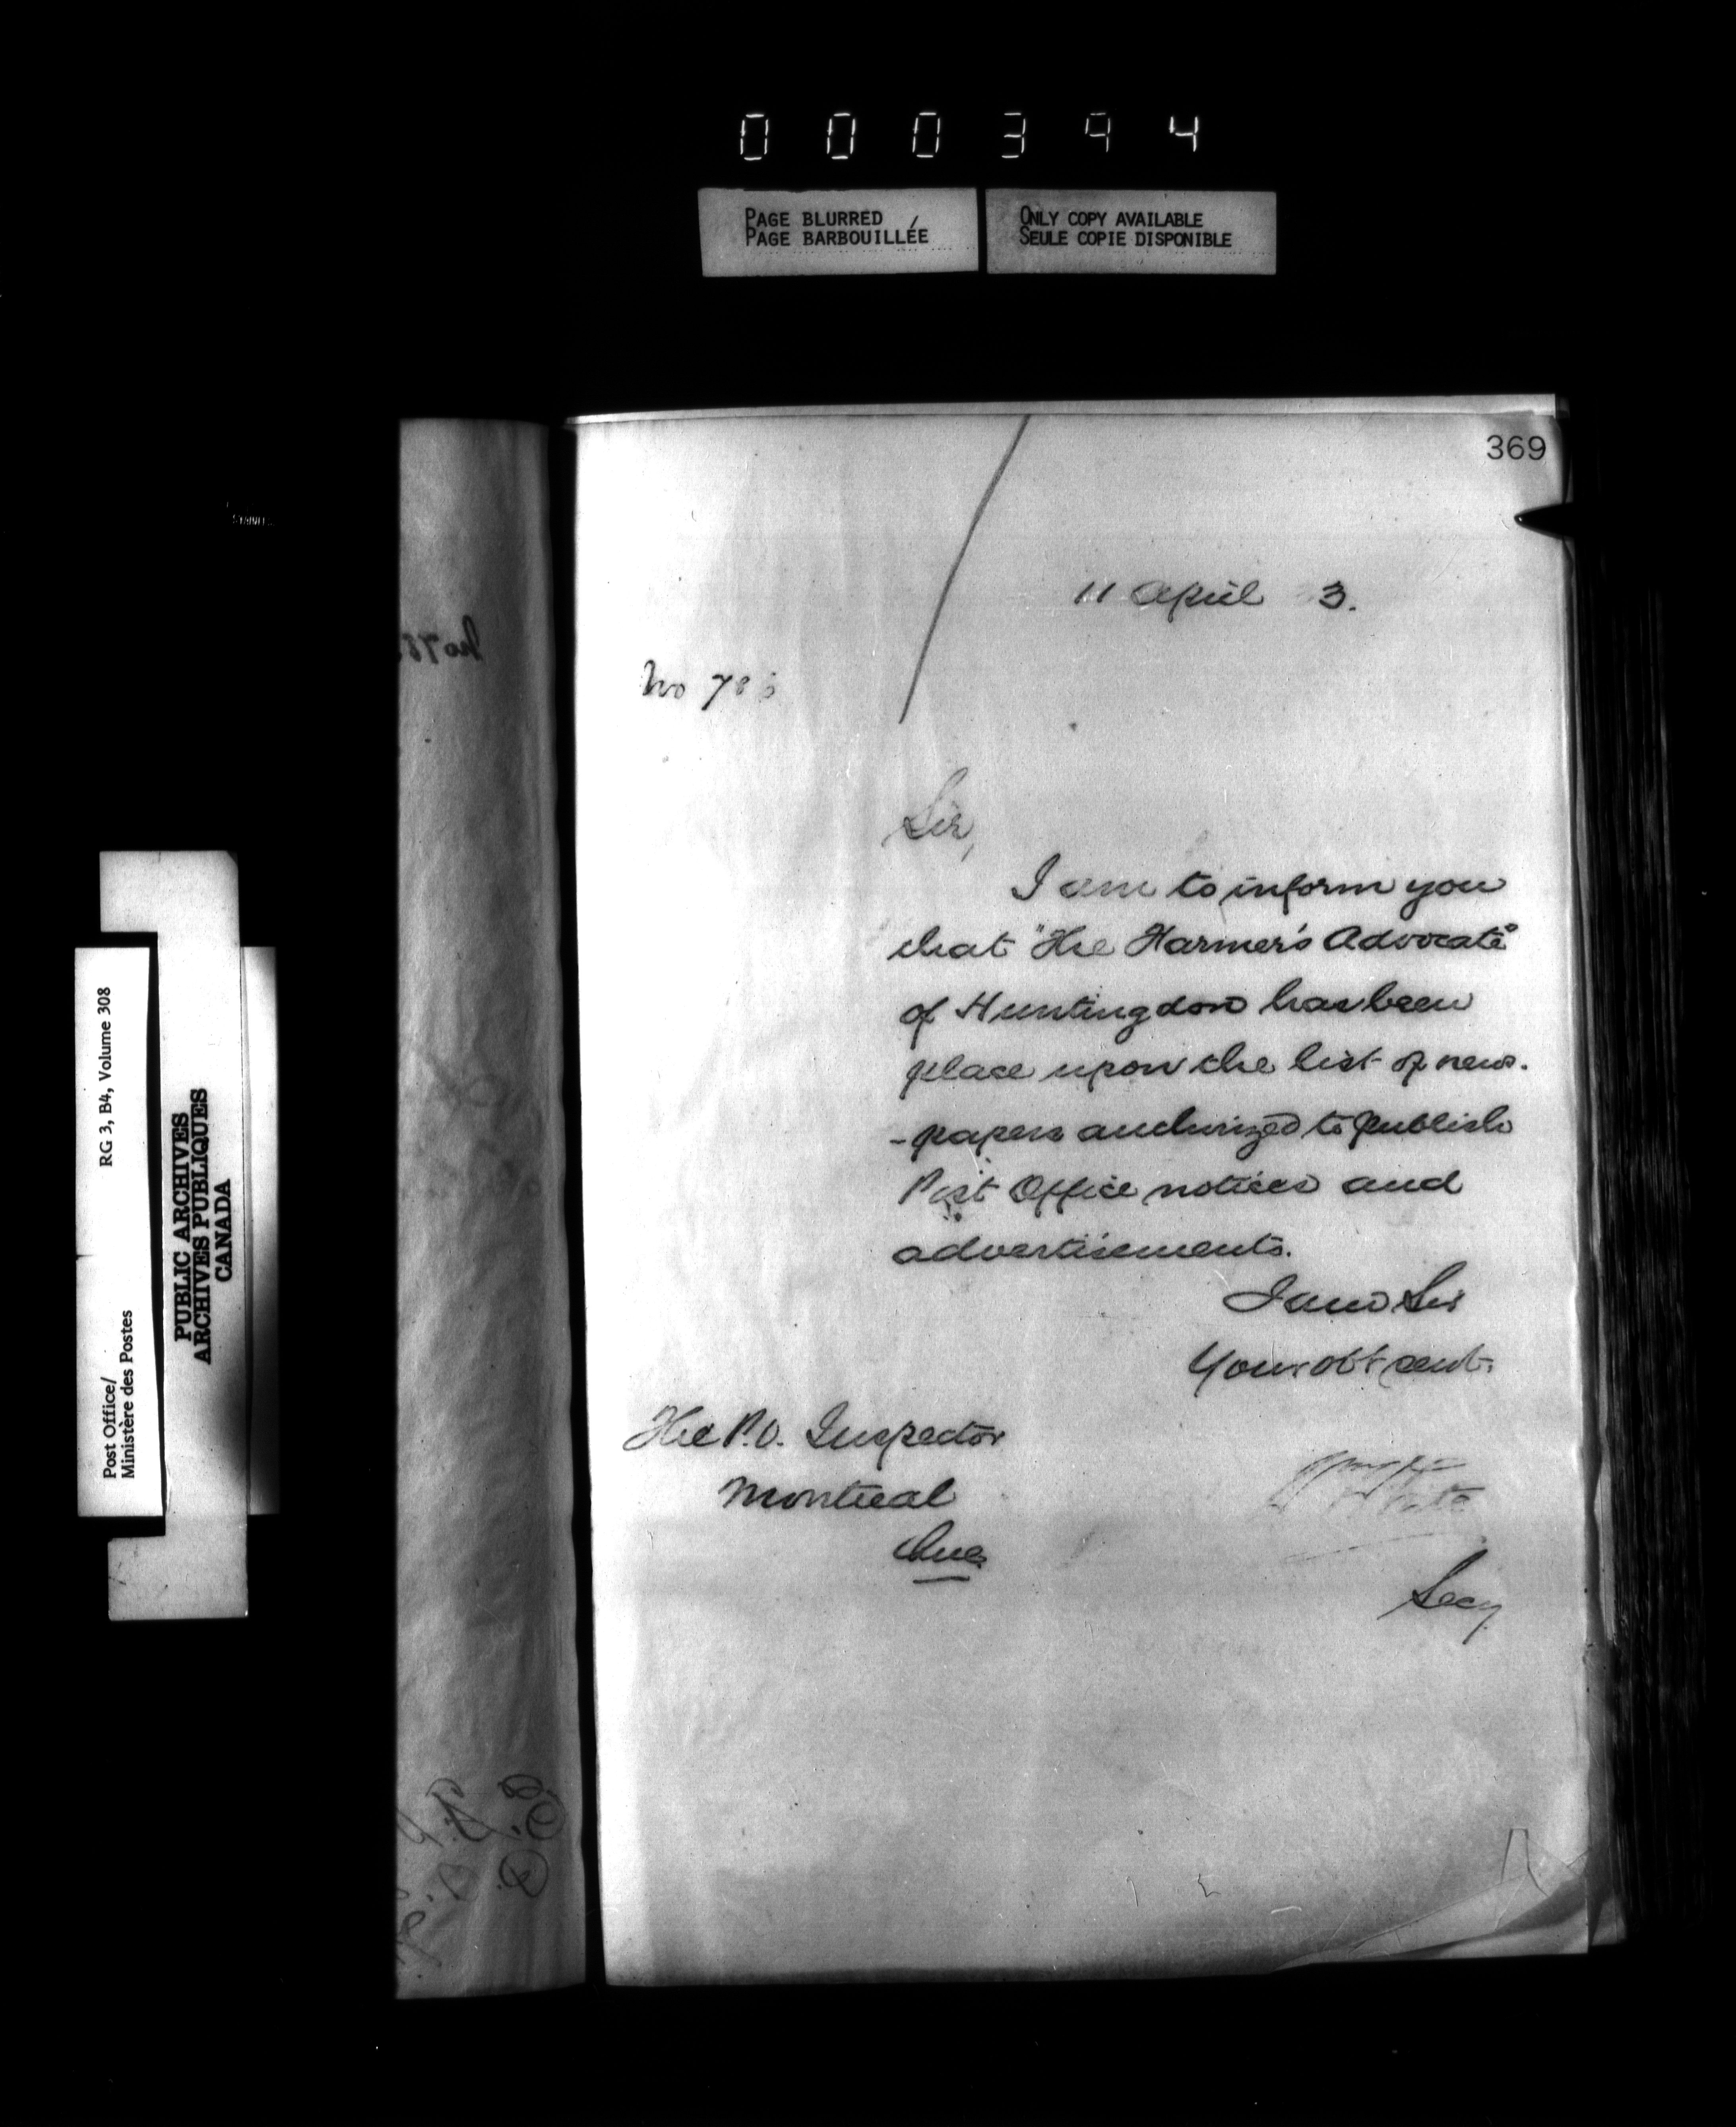 000394
PAGE BLURRED
PAGE BARBOUILLÉE
ONLY COPY AVAILABLE
SEULE COPIE DISPONIBLE
369
11 April 3.
No 78
Sir,
I am to inform you
that "The Farmer's Advocate"
of Huntingdon has been
place upon the list of news-
-papers authorized to publish
Post Office notices and
advertisements.
I am Sir
Your obt servt.
The P.O. Inspector
Montreal
Que.
Secy
Post Office/
Ministère des Postes
RG 3, B4, Volume 308
PUBLIC ARCHIVES
ARCHIVES PUBLIQUES
CANADA